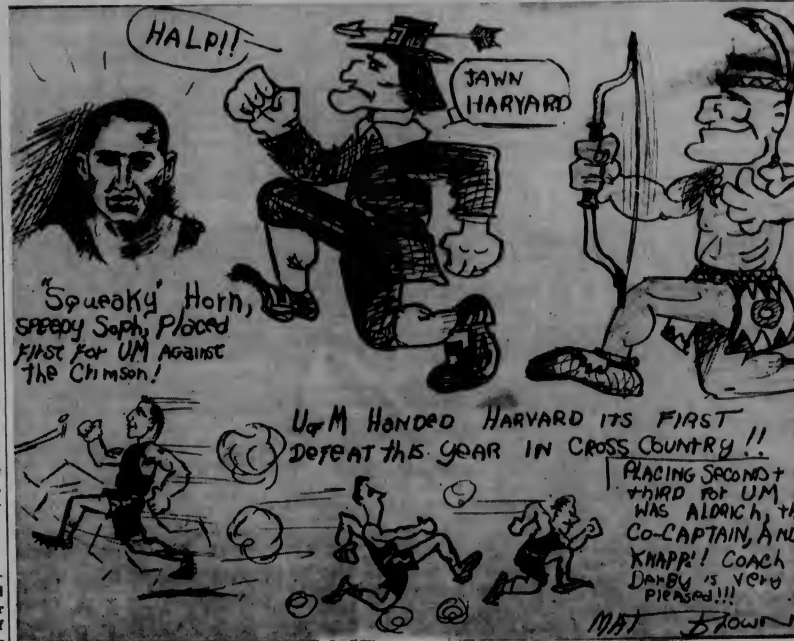 HALP!!
JAWN
HARVARD
"Squeaky" Horn,
speedy Soph, Placed
First for UM Against
the Crimson!
UofM HANDED HARVARD ITS FIRST
DEFEAT this YEAR IN CROSS COUNTRY!!
PLACING SECOND +
tHIRD FOR UM
WAS ALDRICH, th
Co-CAPTAIN, AND
KNAPP!! COACH
DARBY is VERY
PLEASED!!!
MAT BROWN